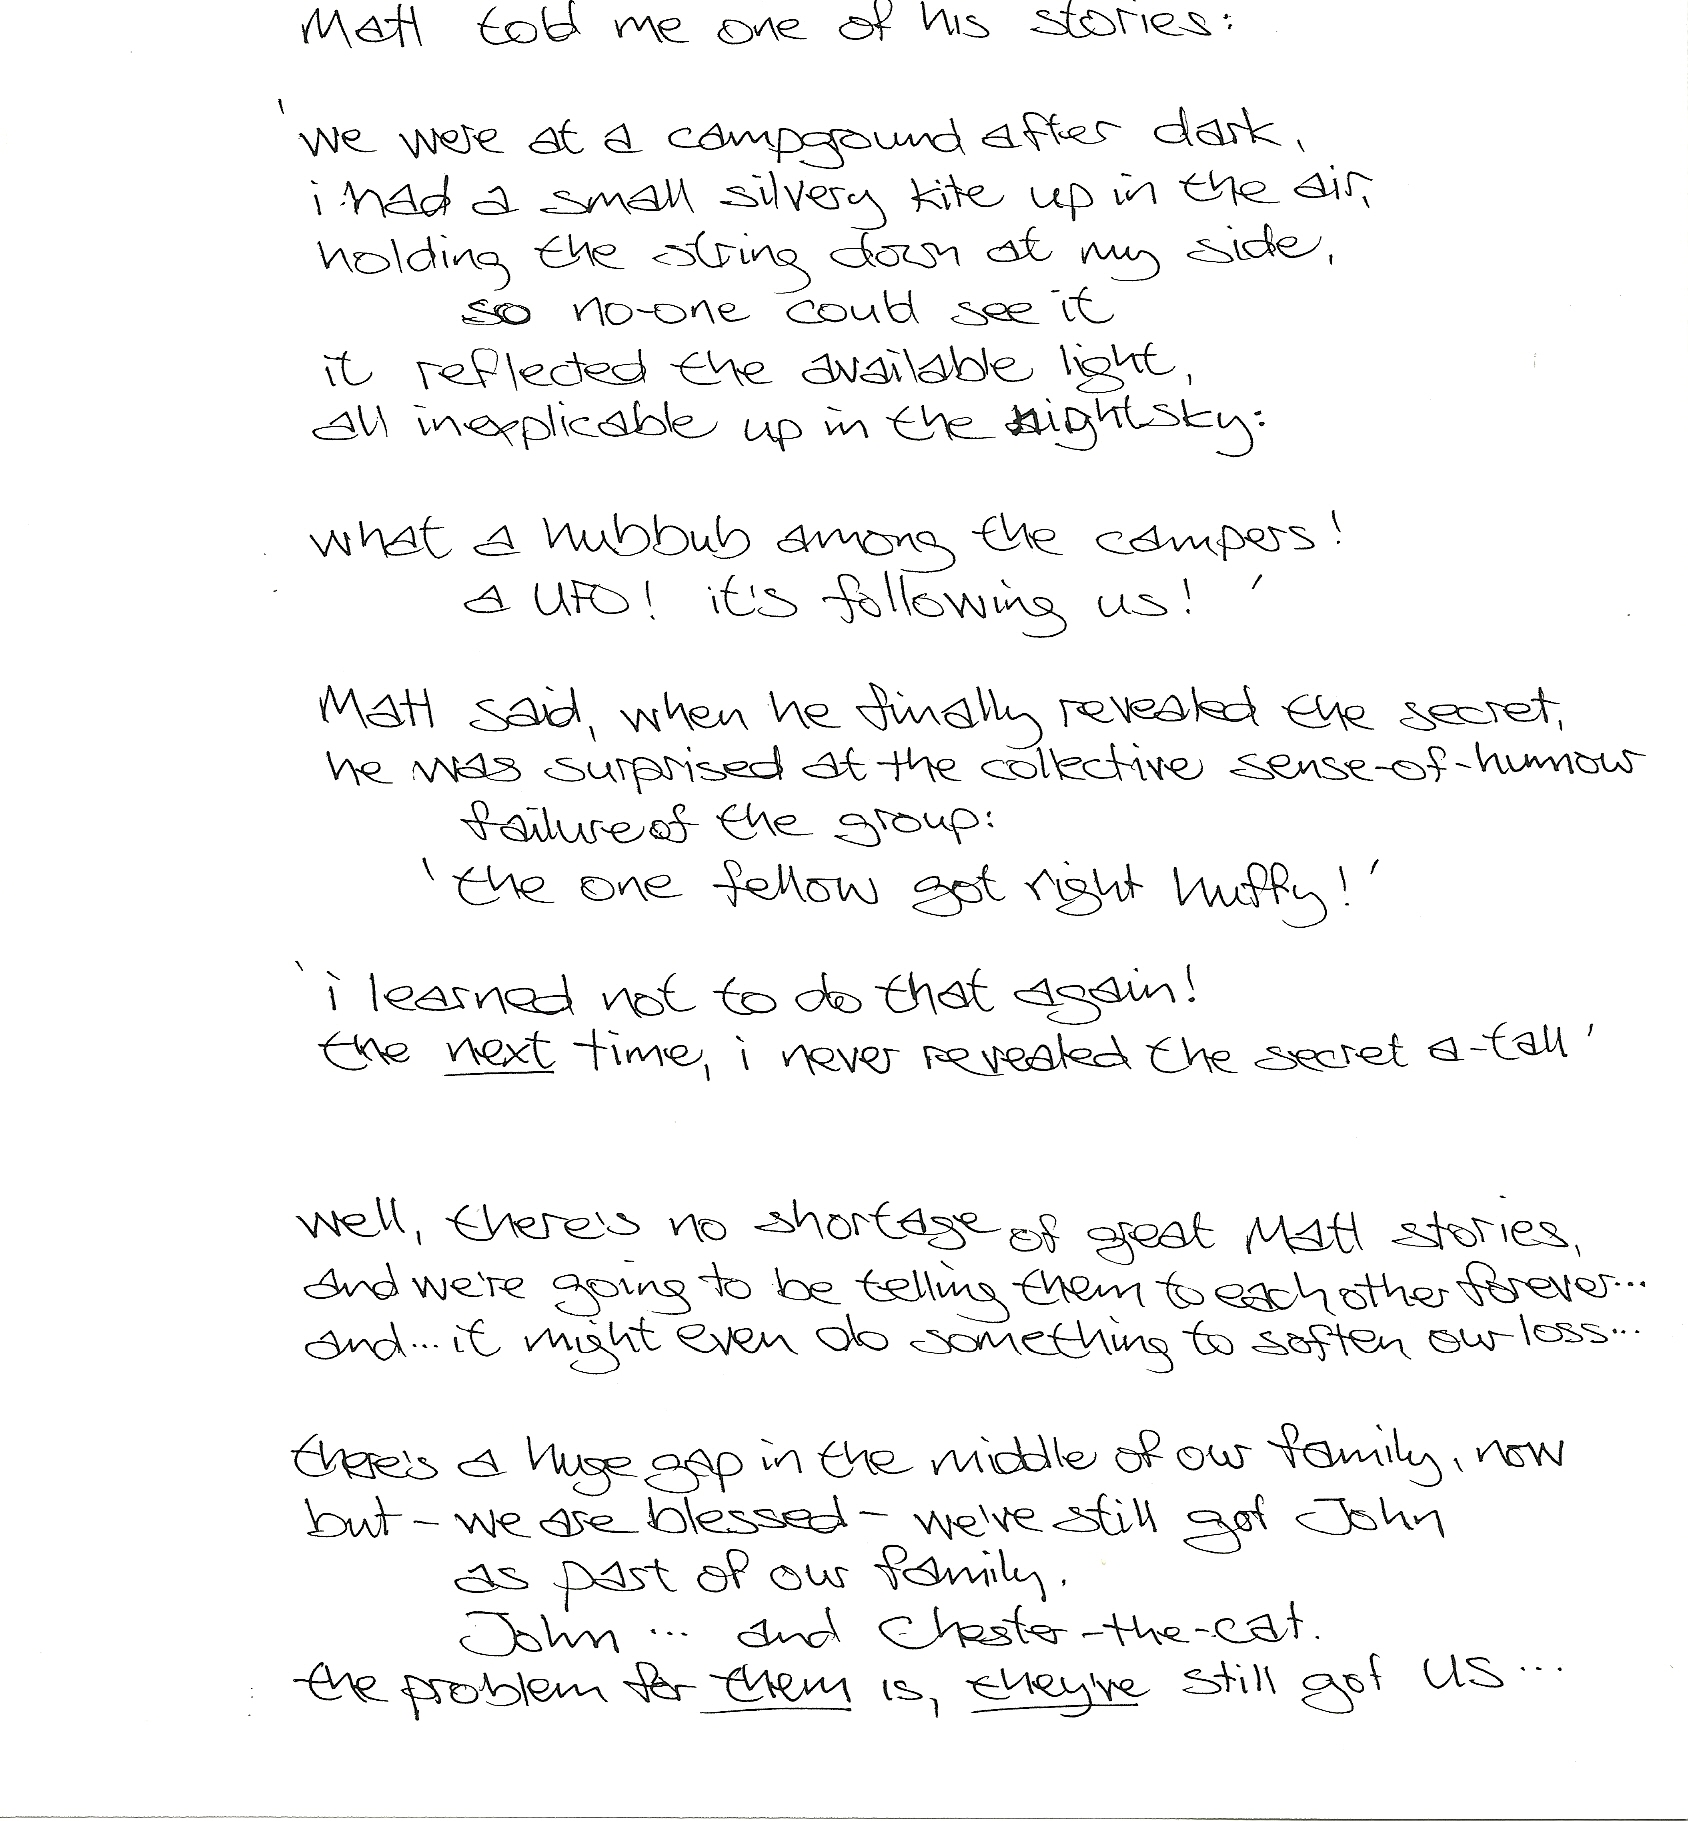 Matt told me one of his stories:
'we were at a campground after dark,
i had a small silvery kite up in the air,
holding the string down at my side,
so no-one could see it
it reflected the available light,
all inexplicable up in the nightsky:
what a hubbub among the campers!
a UFO! it's following us!'
Matt said, when he finally revealed the secret,
he was surprised at the collective sense-of-humour
failure of the group:
'the one fellow got right huffy!'
'i learned not to do that again!
the next time, i never revealed the secret a-tall'
well, there's no shortage of great Matt stories,
and we're going to be telling them to each other forever...
and... it might even do something to soften our loss...
there's a huge gap in the middle of our family, now
but - we are blessed - we've still got John
as part of our family.
John ... and Chester-the-cat.
the problem for them is, they've still got us...